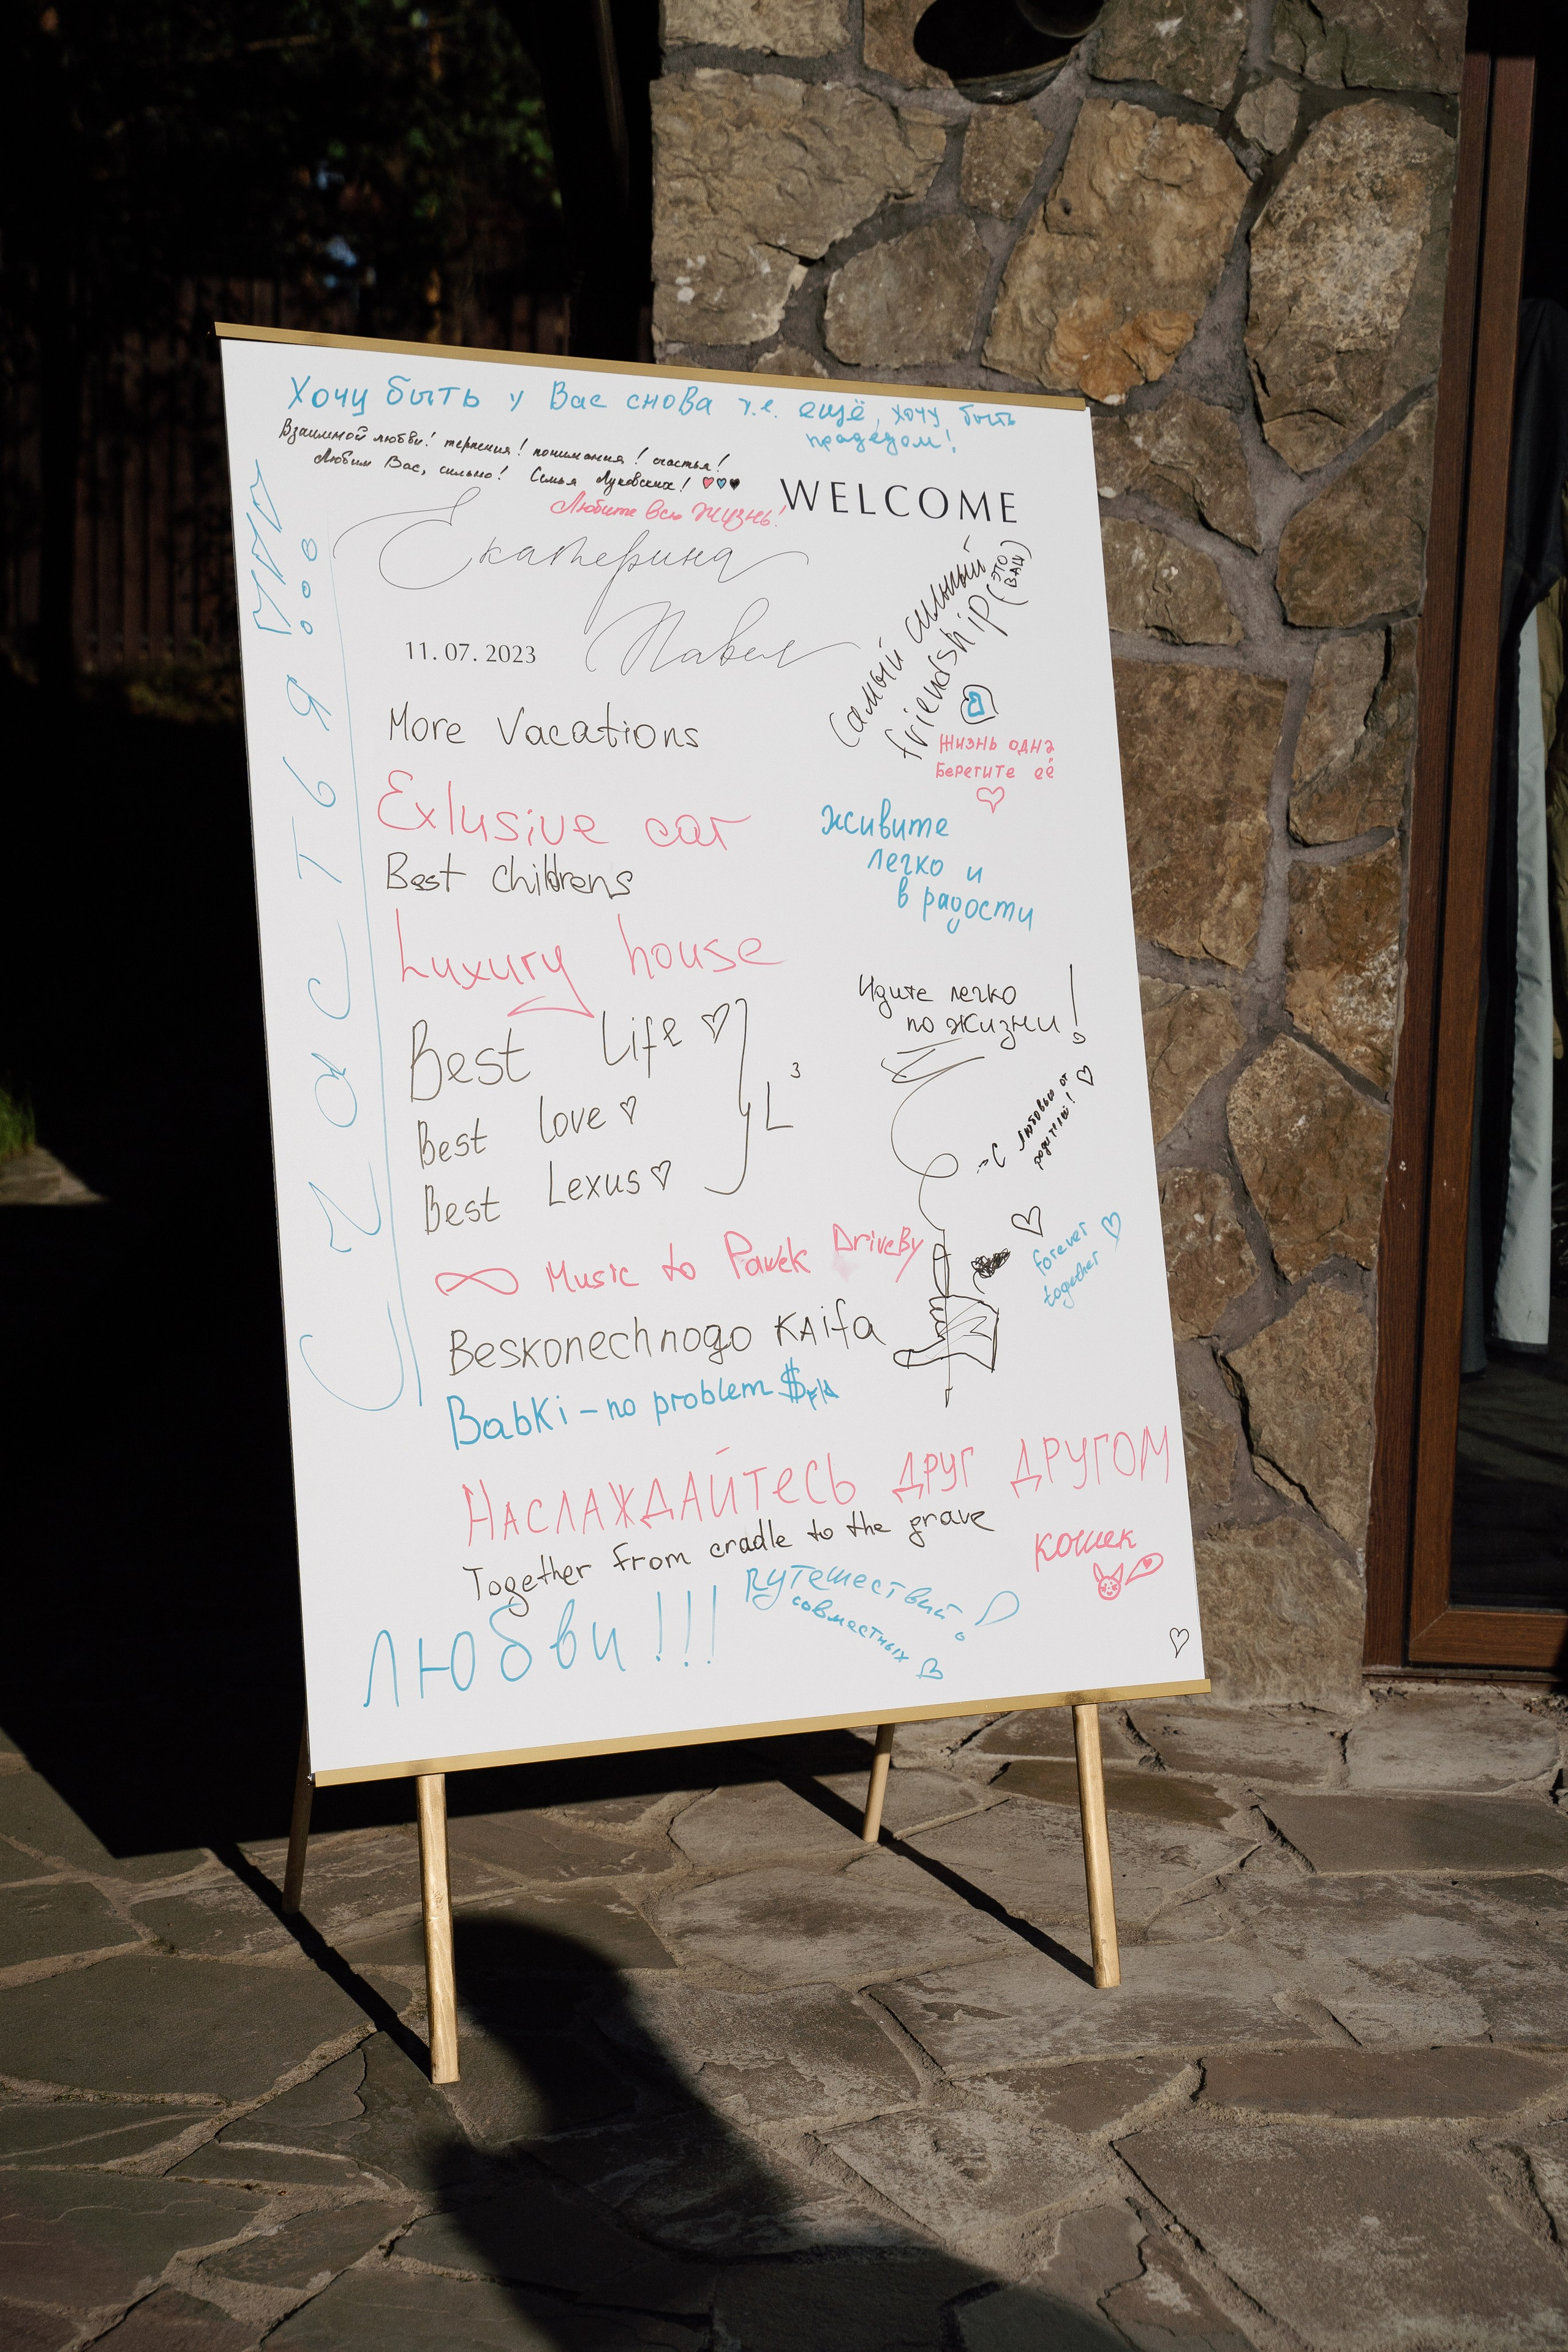 Хочу быть у Вас снова т.е. ещё, хочу быть
прадедом!
Взаимной любви! терпения! понимания! счастья!
Любим Вас, сильно! Семья Луковских!
Любите всю жизнь!
WELCOME
Екатерина
Павел
11.07.2023
Счастья!!!
Самый сильный
friendship (это
ваш)
Жизнь одна
Берегите её
More Vacations
Exlusive car
Best Childrens
Luxury house
живите
легко и
в радости
Идите легко
по жизни!
Best Life
Best Love
Best Lexus
L³
С любовью от
родителей!
forever
together
∞ Music to Pavek DriveBy
Beskonechnogo KAifa
Babki - no problem $
НАСЛАЖДАЙТЕСЬ ДРУГ ДРУГОМ
Together from cradle to the grave
кошек
Любви!!!
путешествий!
совместных